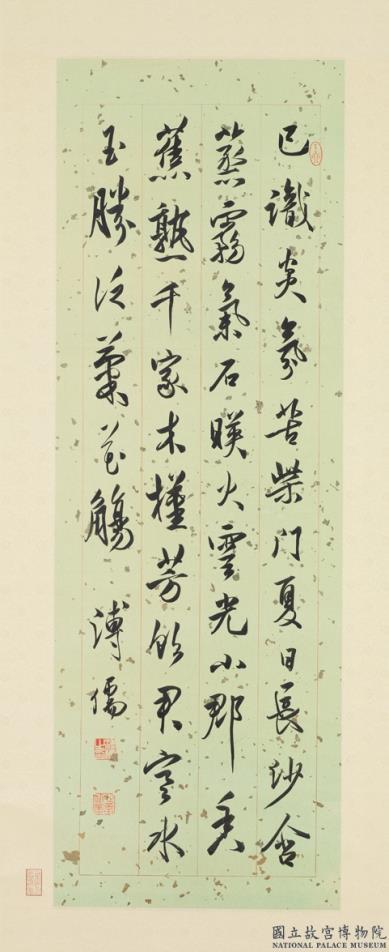 已識炎氛苦柴門夏日長沙含
蒸霧氣石暎火雲光小郡香
蕉熟千家木槿芳飲君寒水
玉勝泛菊花觴 溥儒
國立故宮博物院
NATIONAL PALACE MUSEUM